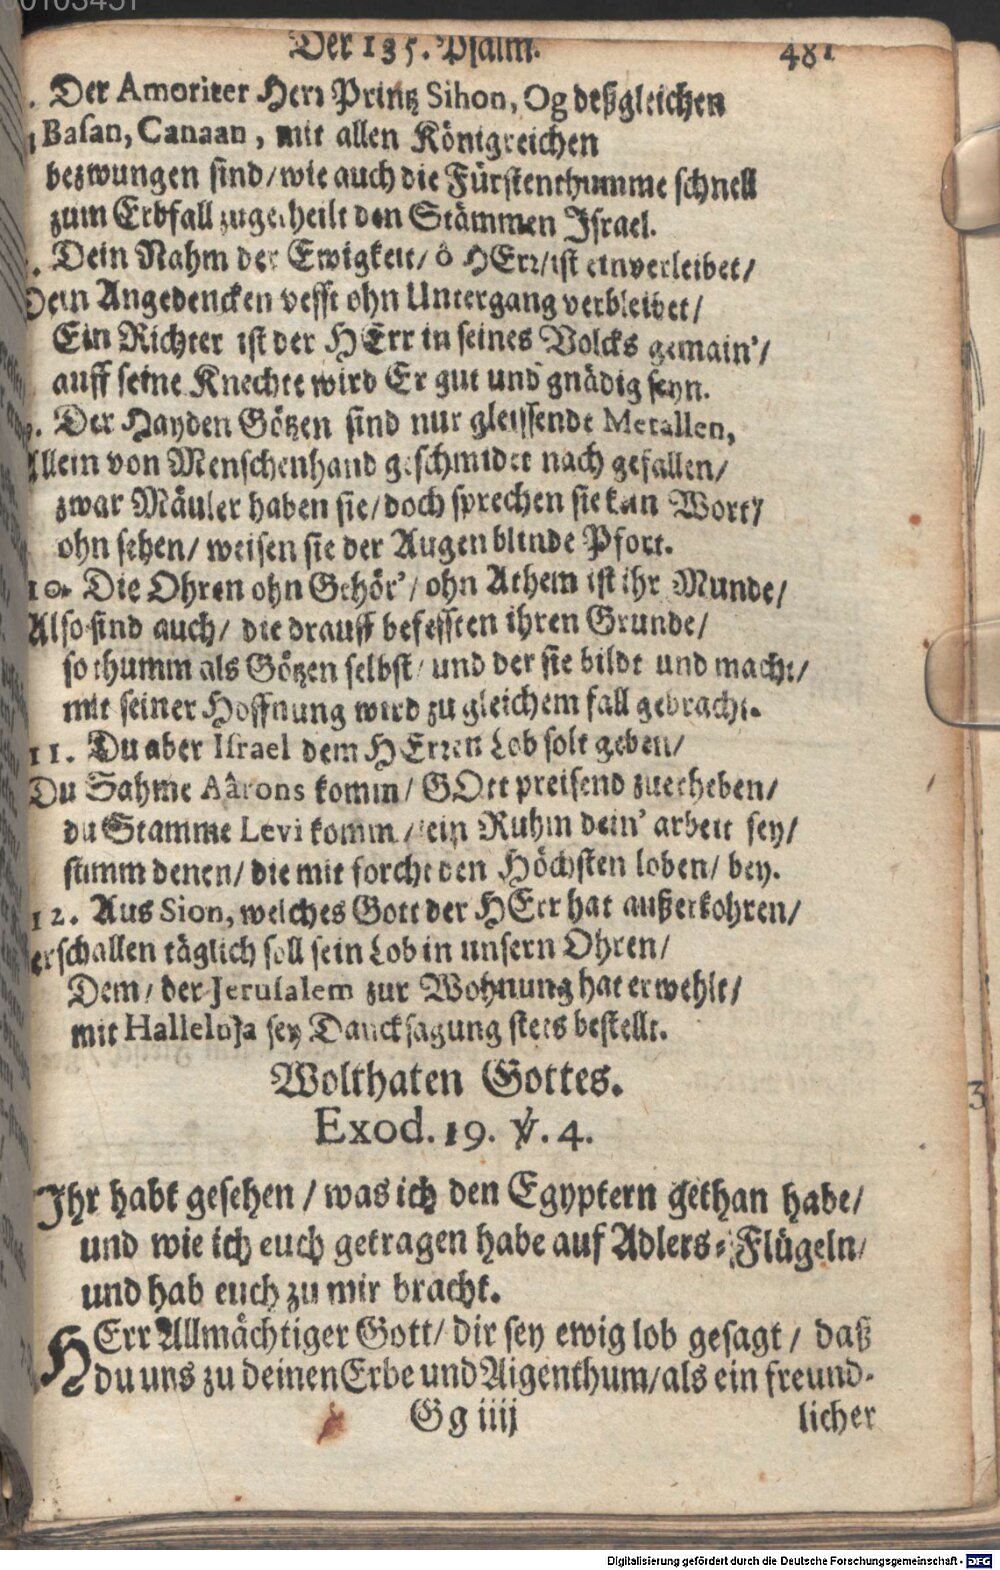 00103451
Der 135. Psalm. 481
. Der Amoriter Herr Printz Sihon, Og deßgleichen
Basan, Canaan, mit allen Königreichen
bezwungen sind/ wie auch die Fürstenthumme schnell
zum Erbfall zugetheilt den Stämmen Israel.
. Dein Nahm der Ewigkeit/ ô HErr/ ist einverleibet/
Dein Angedencken vesst ohn Untergang verbleibet/
Ein Richter ist der HErr in seines Volcks gemain'/
auff seine Knechte wird Er gut und gnädig seyn.
9. Der Hayden Götzen sind nur gleissende Metallen,
Allein von Menschenhand geschmidet nach gefallen/
zwar Mäuler haben sie/ doch sprechen sie kain Wort/
ohn sehen/ weisen sie der Augen blinde Pfort.
10. Die Ohren ohn Gehör'/ ohn Athem ist ihr Munde/
Also sind auch/ die drauff befessten ihren Grunde/
so thumm als Götzen selbst/ und der sie bildt und macht/
mit seiner Hoffnung wird zu gleichem fall gebracht.
11. Du aber Israel dem HErren Lob solt geben/
Du Sahme Aârons komm/ GOtt preisend zuerheben/
du Stamme Levi komm/ sein Ruhm dein' arbeit sey/
stimm denen/ die mit forcht den Höchsten loben/ bey.
12. Aus Sion, welches Gott der HErr hat außerkohren/
erschallen täglich soll sein Lob in unsern Ohren/
Dem/ der Jerusalem zur Wohnung hat erwehlt/
mit Halleluja sey Dancksagung stets bestellt.
Wolthaten Gottes.
Exod. 19. ℣. 4.
Ihr habt gesehen/ was ich den Egyptern gethan habe/
und wie ich euch getragen habe auf Adlers-Flügeln/
und hab euch zu mir bracht.
HErr Allmächtiger Gott/ dir sey ewig lob gesagt/ daß
du uns zu deinen Erbe und Aigenthum/ als ein freund-
Gg iiij licher
Digitalisierung gefördert durch die Deutsche Forschungsgemeinschaft - DFG